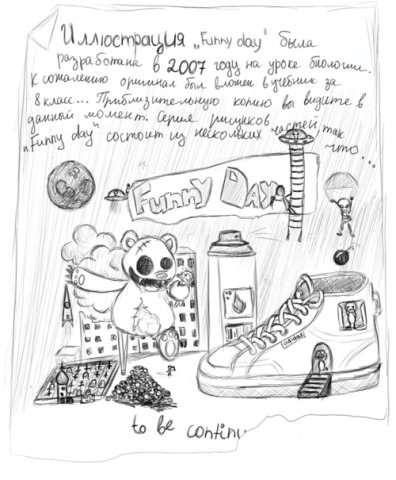 Иллюстрация „Funny day“ была
разработана в 2007 году на уроке биологии.
К сожалению оригинал был вложен в учебник за
8 класс... Приблизительную копию вы видите в
данный момент. Серия рисунков
„Funny day“ состоит из нескольких частей так
что...
Funny Day
to be continu